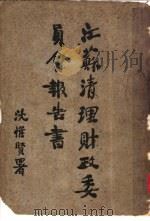 江蘇清理財政委
員會報告書
沈惟賢署